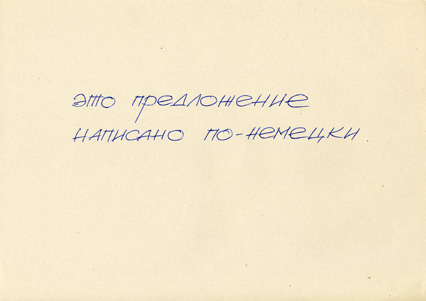 это предложение
написано по-немецки.